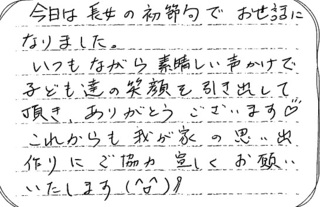 今日は長女の初節句でお世話に
なりました。
いつもながら素晴しい声かけで
子ども達の笑顔を引き出して
頂き、ありがとうございます♡
これからも我が家の思い出
作りにご協力宜しくお願い
いたします(^^)